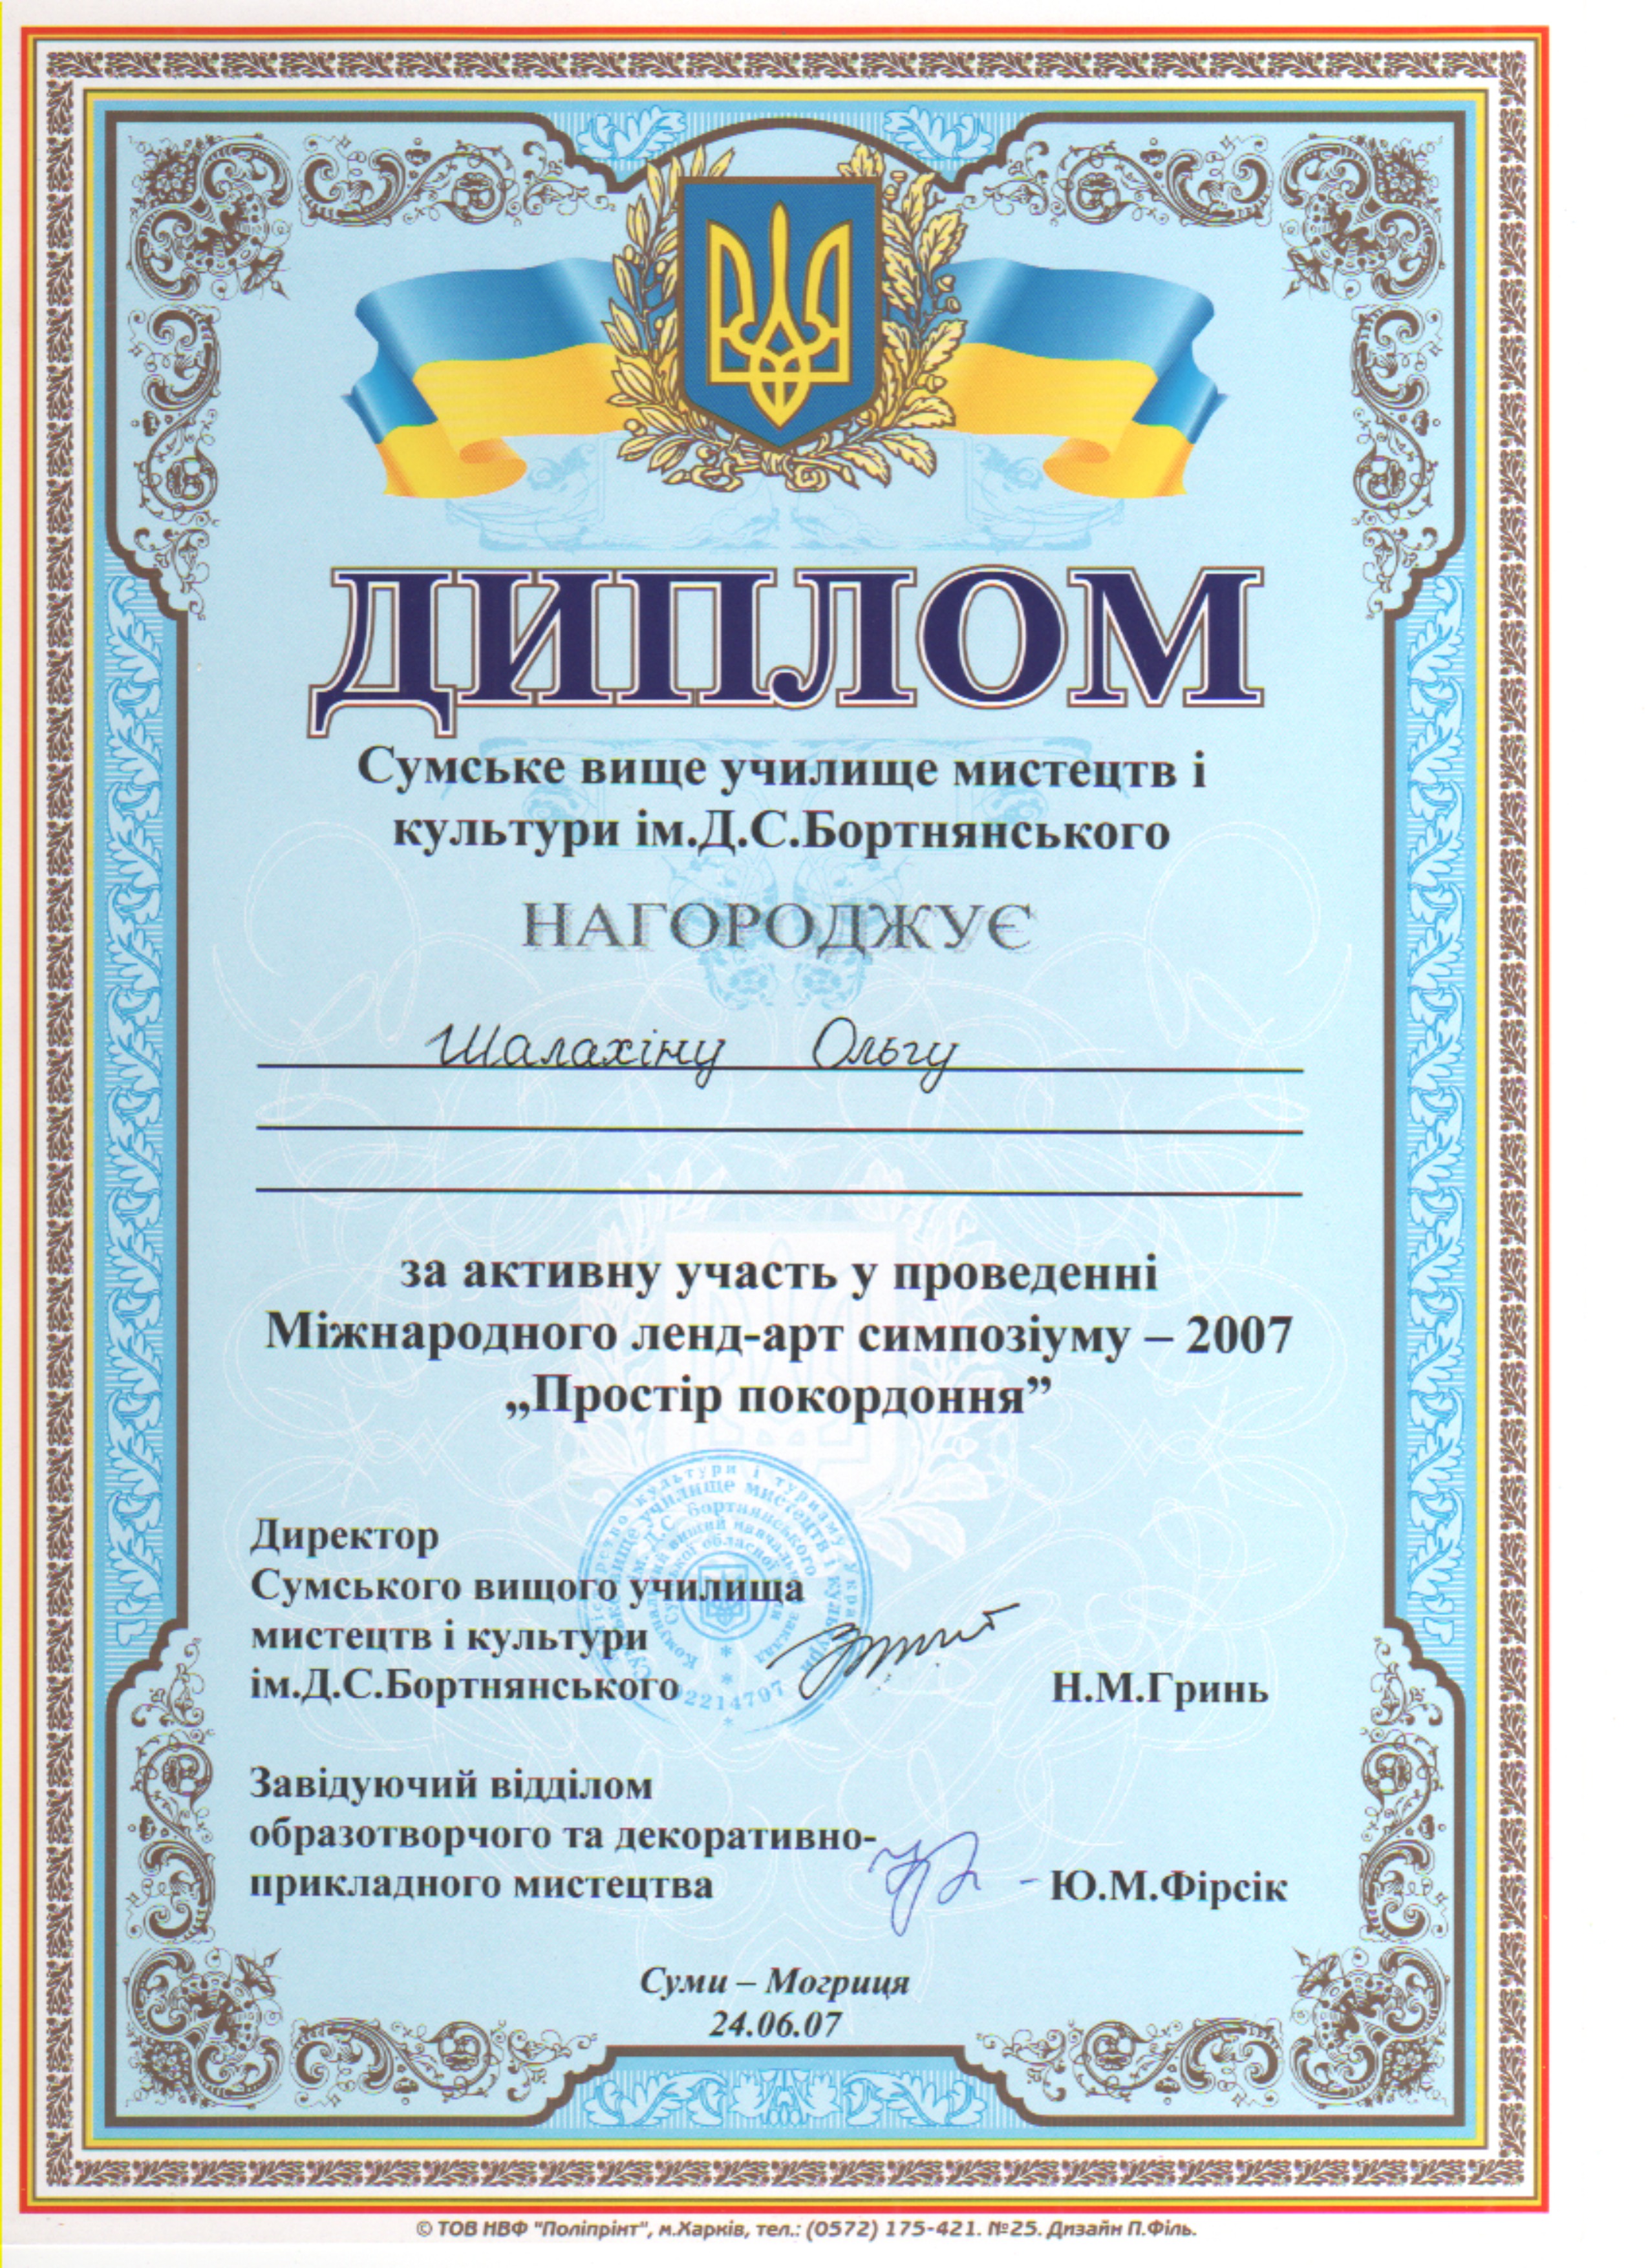 ДИПЛОМ
Сумське вище училище мистецтв і
культури ім.Д.С.Бортнянського
НАГОРОДЖУЄ
Шалахіну Ольгу
за активну участь у проведенні
Міжнародного ленд-арт симпозіуму – 2007
„Простір покордоння”
Директор
Сумського вищого училища
мистецтв і культури
ім.Д.С.Бортнянського
Н.М.Гринь
Завідуючий відділом
образотворчого та декоративно-
прикладного мистецтва
Ю.М.Фірсік
Суми – Могриця
24.06.07
© ТОВ НВФ "Поліпрінт", м.Харків, тел.: (0572) 175-421. №25. Дизайн П.Філь.